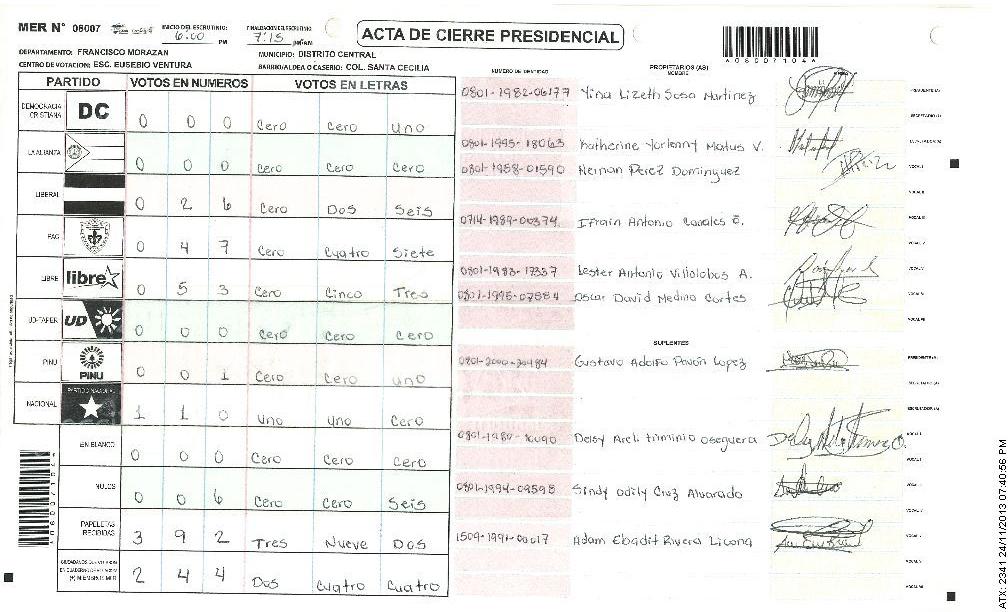 MER N° 08007 INICIO DEL ESCRUTINIO: 6:00 PM FINALIZACION DEL ESCRUTINIO: 7:15
ACTA DE CIERRE PRESIDENCIAL
A08007104A
DEPARTAMENTO: FRANCISCO MORAZAN MUNICIPIO: DISTRITO CENTRAL
CENTRO DE VOTACION: ESC. EUSEBIO VENTURA BARRIO/ALDEA O CASERIO: COL. SANTA CECILIA
PARTIDO VOTOS EN NUMEROS VOTOS EN LETRAS
DEMOCRACIA CRISTIANA DC 0 0 0 Cero Cero Uno
LA ALIANZA 0 0 0 Cero Cero Cero
LIBERAL 0 2 6 Cero Dos Seis
PAC 0 4 7 Cero Cuatro Siete
LIBRE libre 0 5 3 Cero Cinco Tres
UD-FAPER UD 0 0 0 Cero Cero Cero
PINU PINU 0 0 1 Cero Cero uno
NACIONAL PARTIDO NACIONAL 1 1 0 uno uno Cero
EN BLANCO 0 0 0 Cero Cero Cero
NULOS 0 0 6 Cero Cero Seis
PAPELETAS RECIBIDAS 3 9 2 Tres Nueve Dos
2 4 4 Dos Cuatro Cuatro
NUMERO DE IDENTIDAD PROPIETARIOS (AS) NOMBRE
0801-1982-06177 Yina Lizeth Sosa Martinez
0801-1995-18063 Katherine Yorlenny Matus V.
0801-1958-01590 Hernan Perez Dominguez
0714-1989-00374 Ifrain Antonio Canales O.
0801-1983-17337 Lester Antonio Villalobos A.
0801-1995-07884 Oscar David Medina Cortes
SUPLENTES
Gustavo Adolfo Pavon Lopez
Deisy Areli turminio oseguera
0801-1994-09598 Sindy Odily Cruz Alvarado
1509-1991-00017 Adam Ebadit Rivera Licona
ATX: 2341 24/11/2013 07:40:56 PM